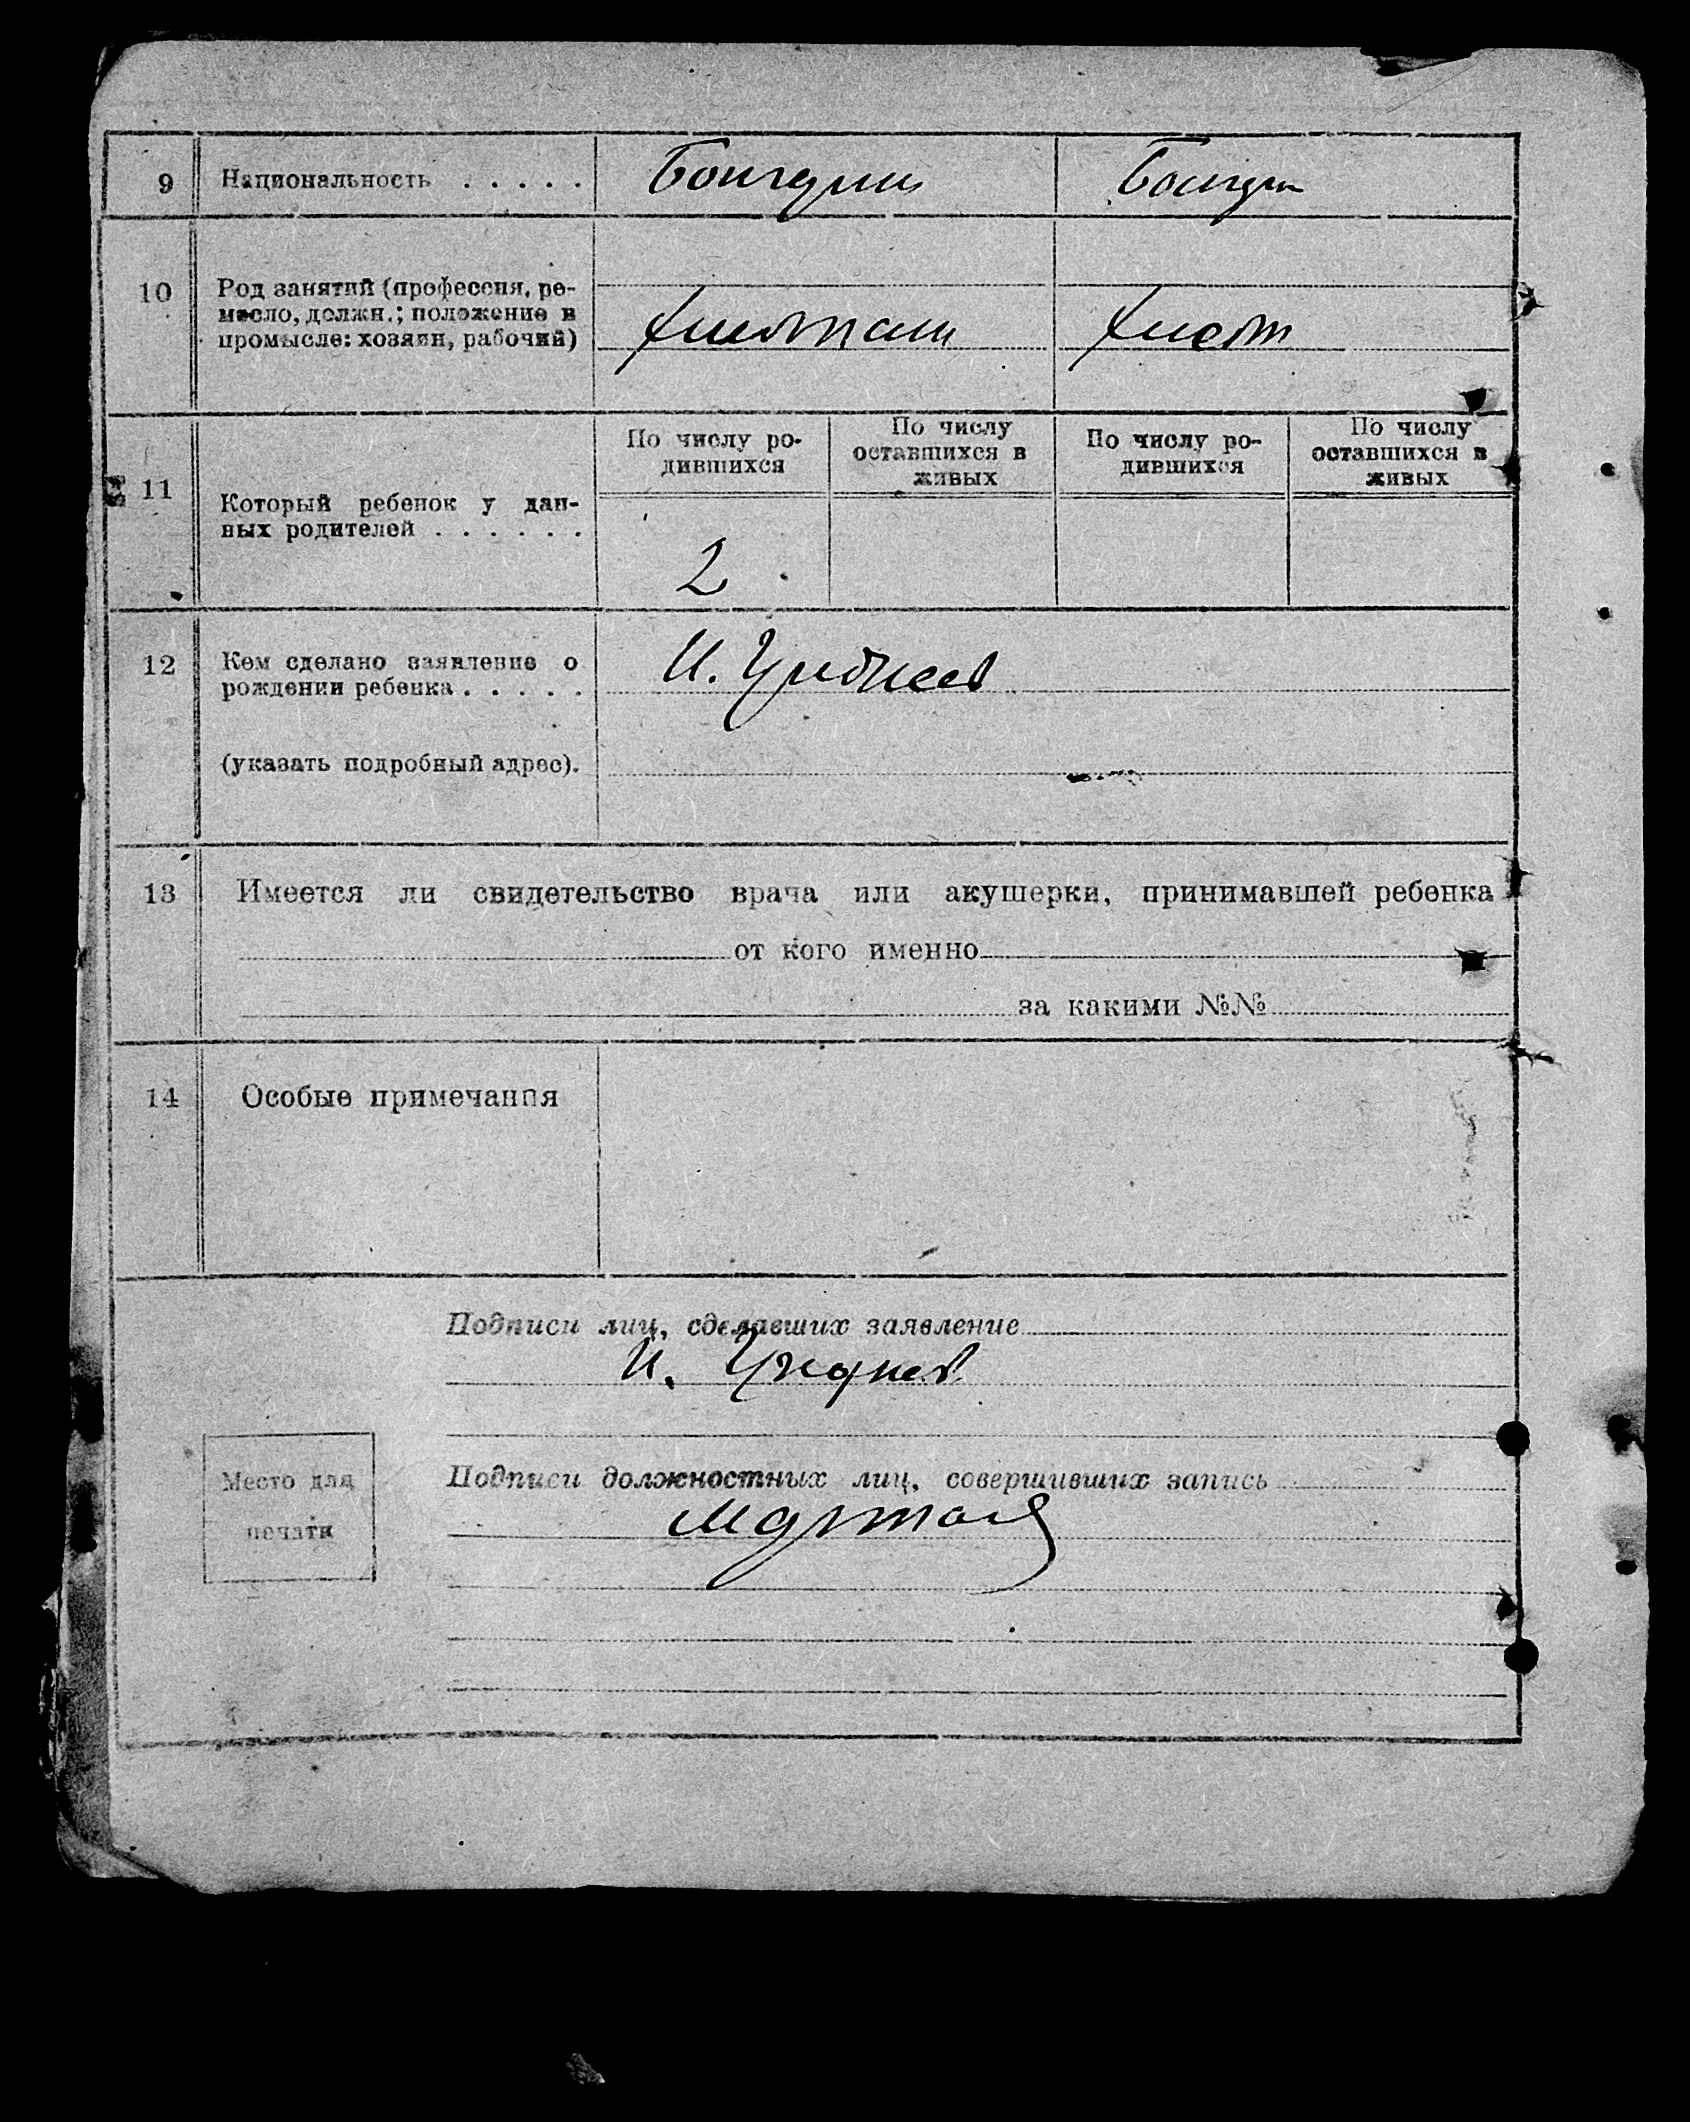 9 Национальность . . . . .
10 Род занятий (профессия, ре-
месло, должн.; положение в
промысле: хозяин, рабочий)
По числу ро-
дившихся
По числу
оставшихся в
живых
По числу ро-
дившихся
По числу
оставшихся в
живых
11 Который ребенок у дан-
ных родителей . . . . . .
2
12 Кем сделано заявление о
рождении ребенка . . . . .
И.
(указать подробный адрес).
13 Имеется ли свидетельство врача или акушерки, принимавшей ребенка
от кого именно
за какими №№
14 Особые примечания
Подписи лиц, сделавших заявление
И.
Место для
печати
Подписи должностных лиц, совершивших запись